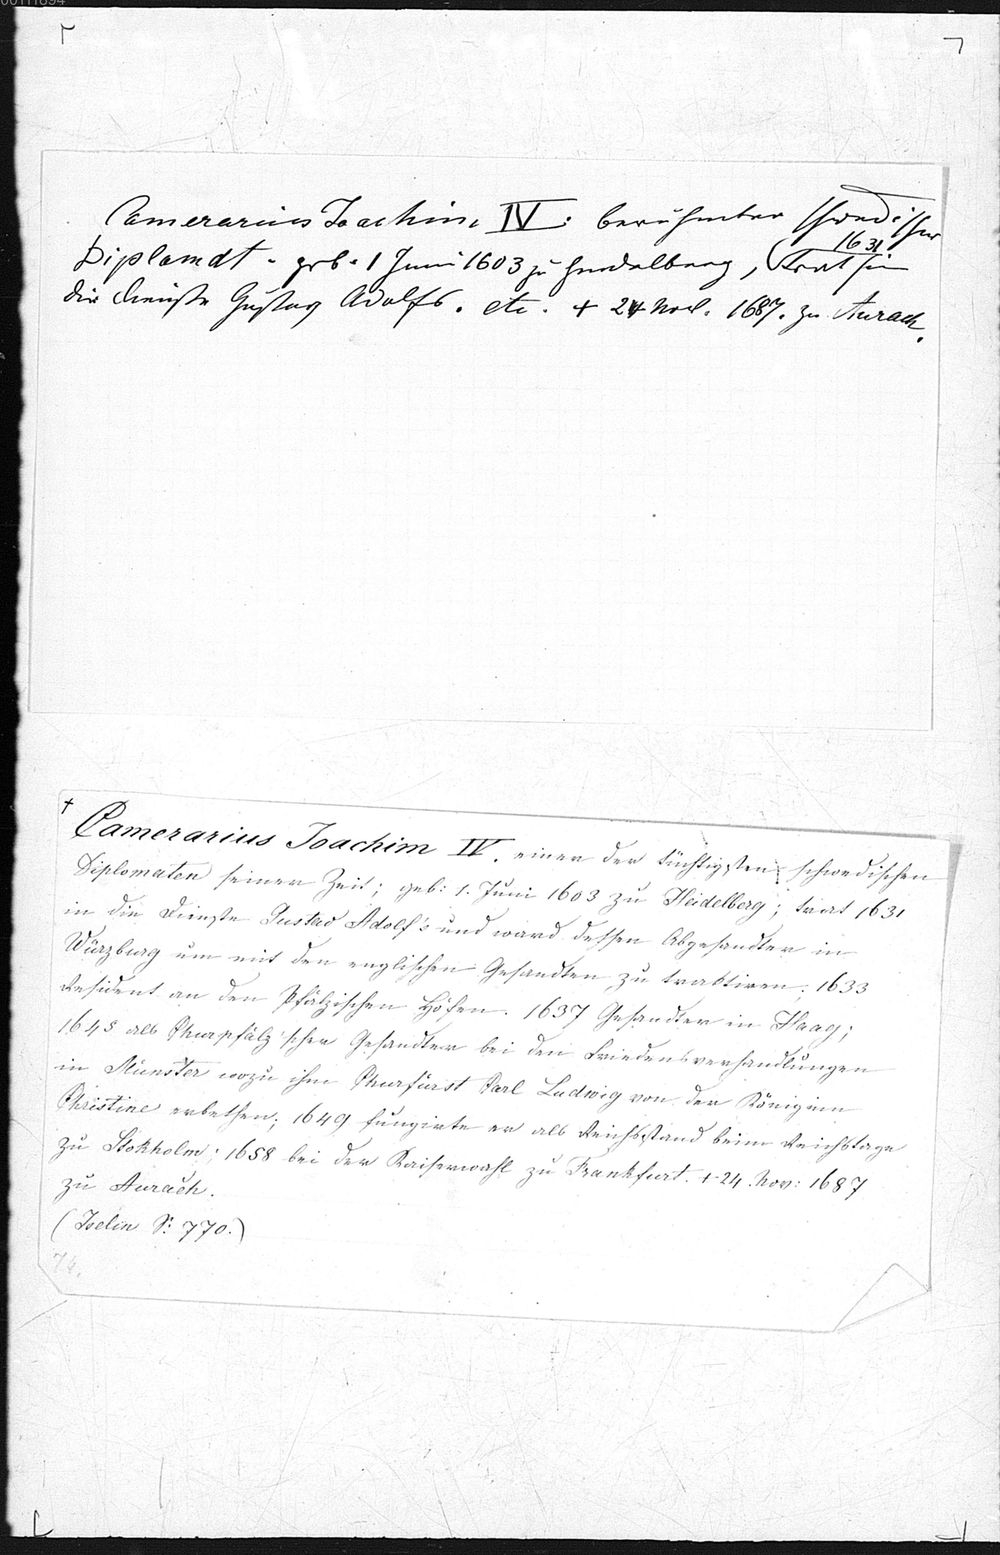 00111894
Camerarius Joachim IV: berühmter schwedischer
Diplomat. geb. 1 Juni 1603 zu Heidelberg, trat 1631 in
die Dienste Gustav Adolfs. etc. + 24 Nov. 1687. zu Aurach.
+ Camerarius Joachim IV. einer der tüchtigsten schwedischen
Diplomaten seiner Zeit; geb: 1. Juni 1603 zu Heidelberg; trat 1631
in die Dienste Gustav Adolf's und ward dessen Abgesandter in
Würzburg um mit den englischen Gesandten zu traktiren; 1633
Resident an den Pfälzischen Höfen. 1637 Gesandter in Haag;
1645 als Churpfälz'scher Gesandter bei den Friedensverhandlungen
in Münster wozu ihn Churfürst Carl Ludwig von der Königinn
Christine erbethen; 1649 fungirte er als Reichsstand beim Reichstage
zu Stokholm; 1658 bei der Kaiserwahl zu Frankfurt. + 24. Nov: 1687
zu Aurach.
(Iselin S: 770.)